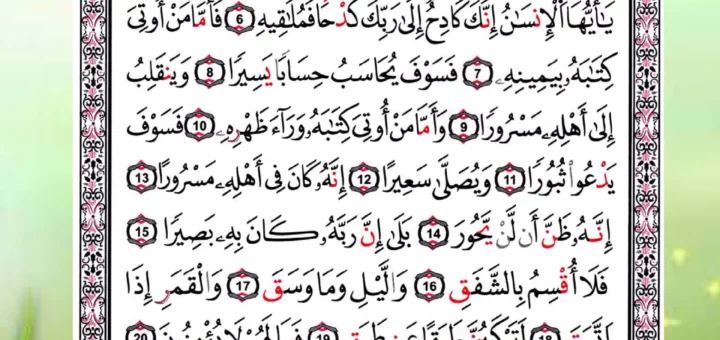 يَٰٓأَيُّهَا ٱلْإِنسَٰنُ إِنَّكَ كَادِحٌ إِلَىٰ رَبِّكَ كَدْحًا فَمُلَٰقِيهِ 6 فَأَمَّا مَنْ أُوتِىَ
كِتَٰبَهُۥ بِيَمِينِهِۦ 7 فَسَوْفَ يُحَاسَبُ حِسَابًا يَسِيرًا 8 وَيَنقَلِبُ
إِلَىٰٓ أَهْلِهِۦ مَسْرُورًا 9 وَأَمَّا مَنْ أُوتِىَ كِتَٰبَهُۥ وَرَآءَ ظَهْرِهِۦ 10 فَسَوْفَ
يَدْعُوا۟ ثُبُورًا 11 وَيَصْلَىٰ سَعِيرًا 12 إِنَّهُۥ كَانَ فِىٓ أَهْلِهِۦ مَسْرُورًا 13
إِنَّهُۥ ظَنَّ أَن لَّن يَحُورَ 14 بَلَىٰٓ إِنَّ رَبَّهُۥ كَانَ بِهِۦ بَصِيرًا 15
فَلَآ أُقْسِمُ بِٱلشَّفَقِ 16 وَٱلَّيْلِ وَمَا وَسَقَ 17 وَٱلْقَمَرِ إِذَا
18 19 20